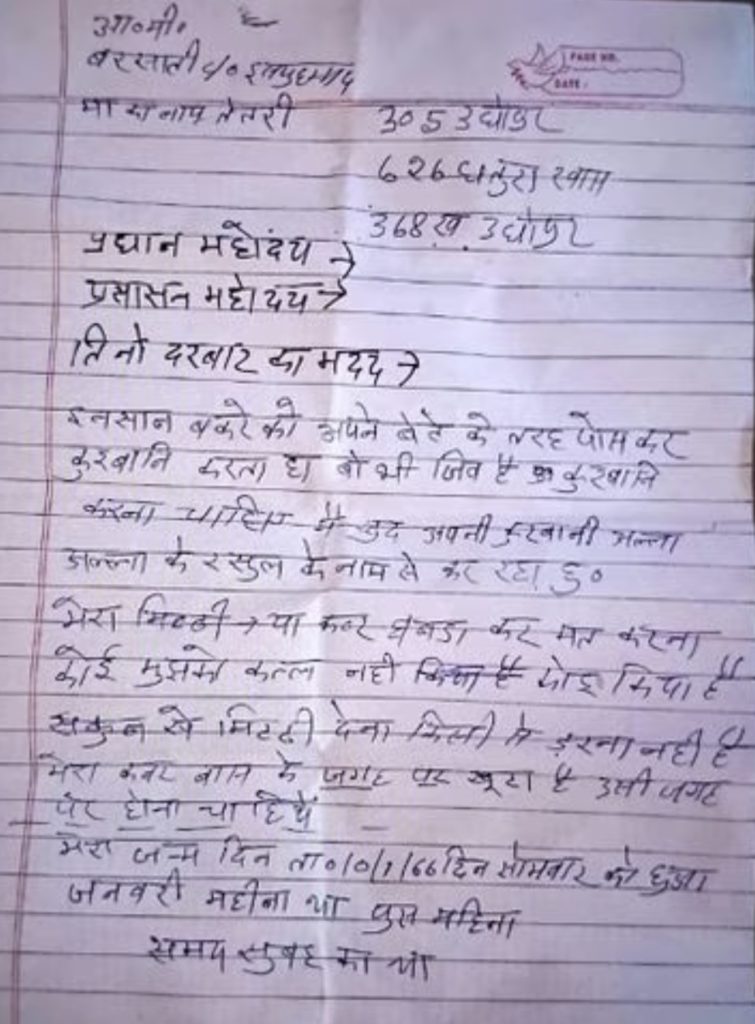 आ०मी०
बरसाती
PAGE NO.
मा का नाम तेतरी
DATE :
305 उधोपुर
626 धतुरा खास
प्रधान महोदय → 368 ख. उधोपुर
प्रसासन महोदय →
तिनो दरबार का मदद →
इनसान बकरे को अपने बेटे के तरह पोस कर
कुरबानि करता है। वो भी जिव है कुरबानि
करना चाहिए मै खुद अपनी कुरबानी अल्ला
अल्ला के रसुल के नाम से कर रहा हु०
मेरा मिटटी → या कबर घबडा कर मत करना
कोई मुझको कत्ल नही किया है कोइ किया है
सकुन से मिटटी देना किसी से ड़रना नही है
मेरा कबर बास के जगह पर खूटा है उसी जगह
पर होना चाहिये
मेरा जन्म दिन ता० 10/1/66 दिन सोमवार को हुआ
जनवरी महीना था पुस महिना
समय सुबह का था